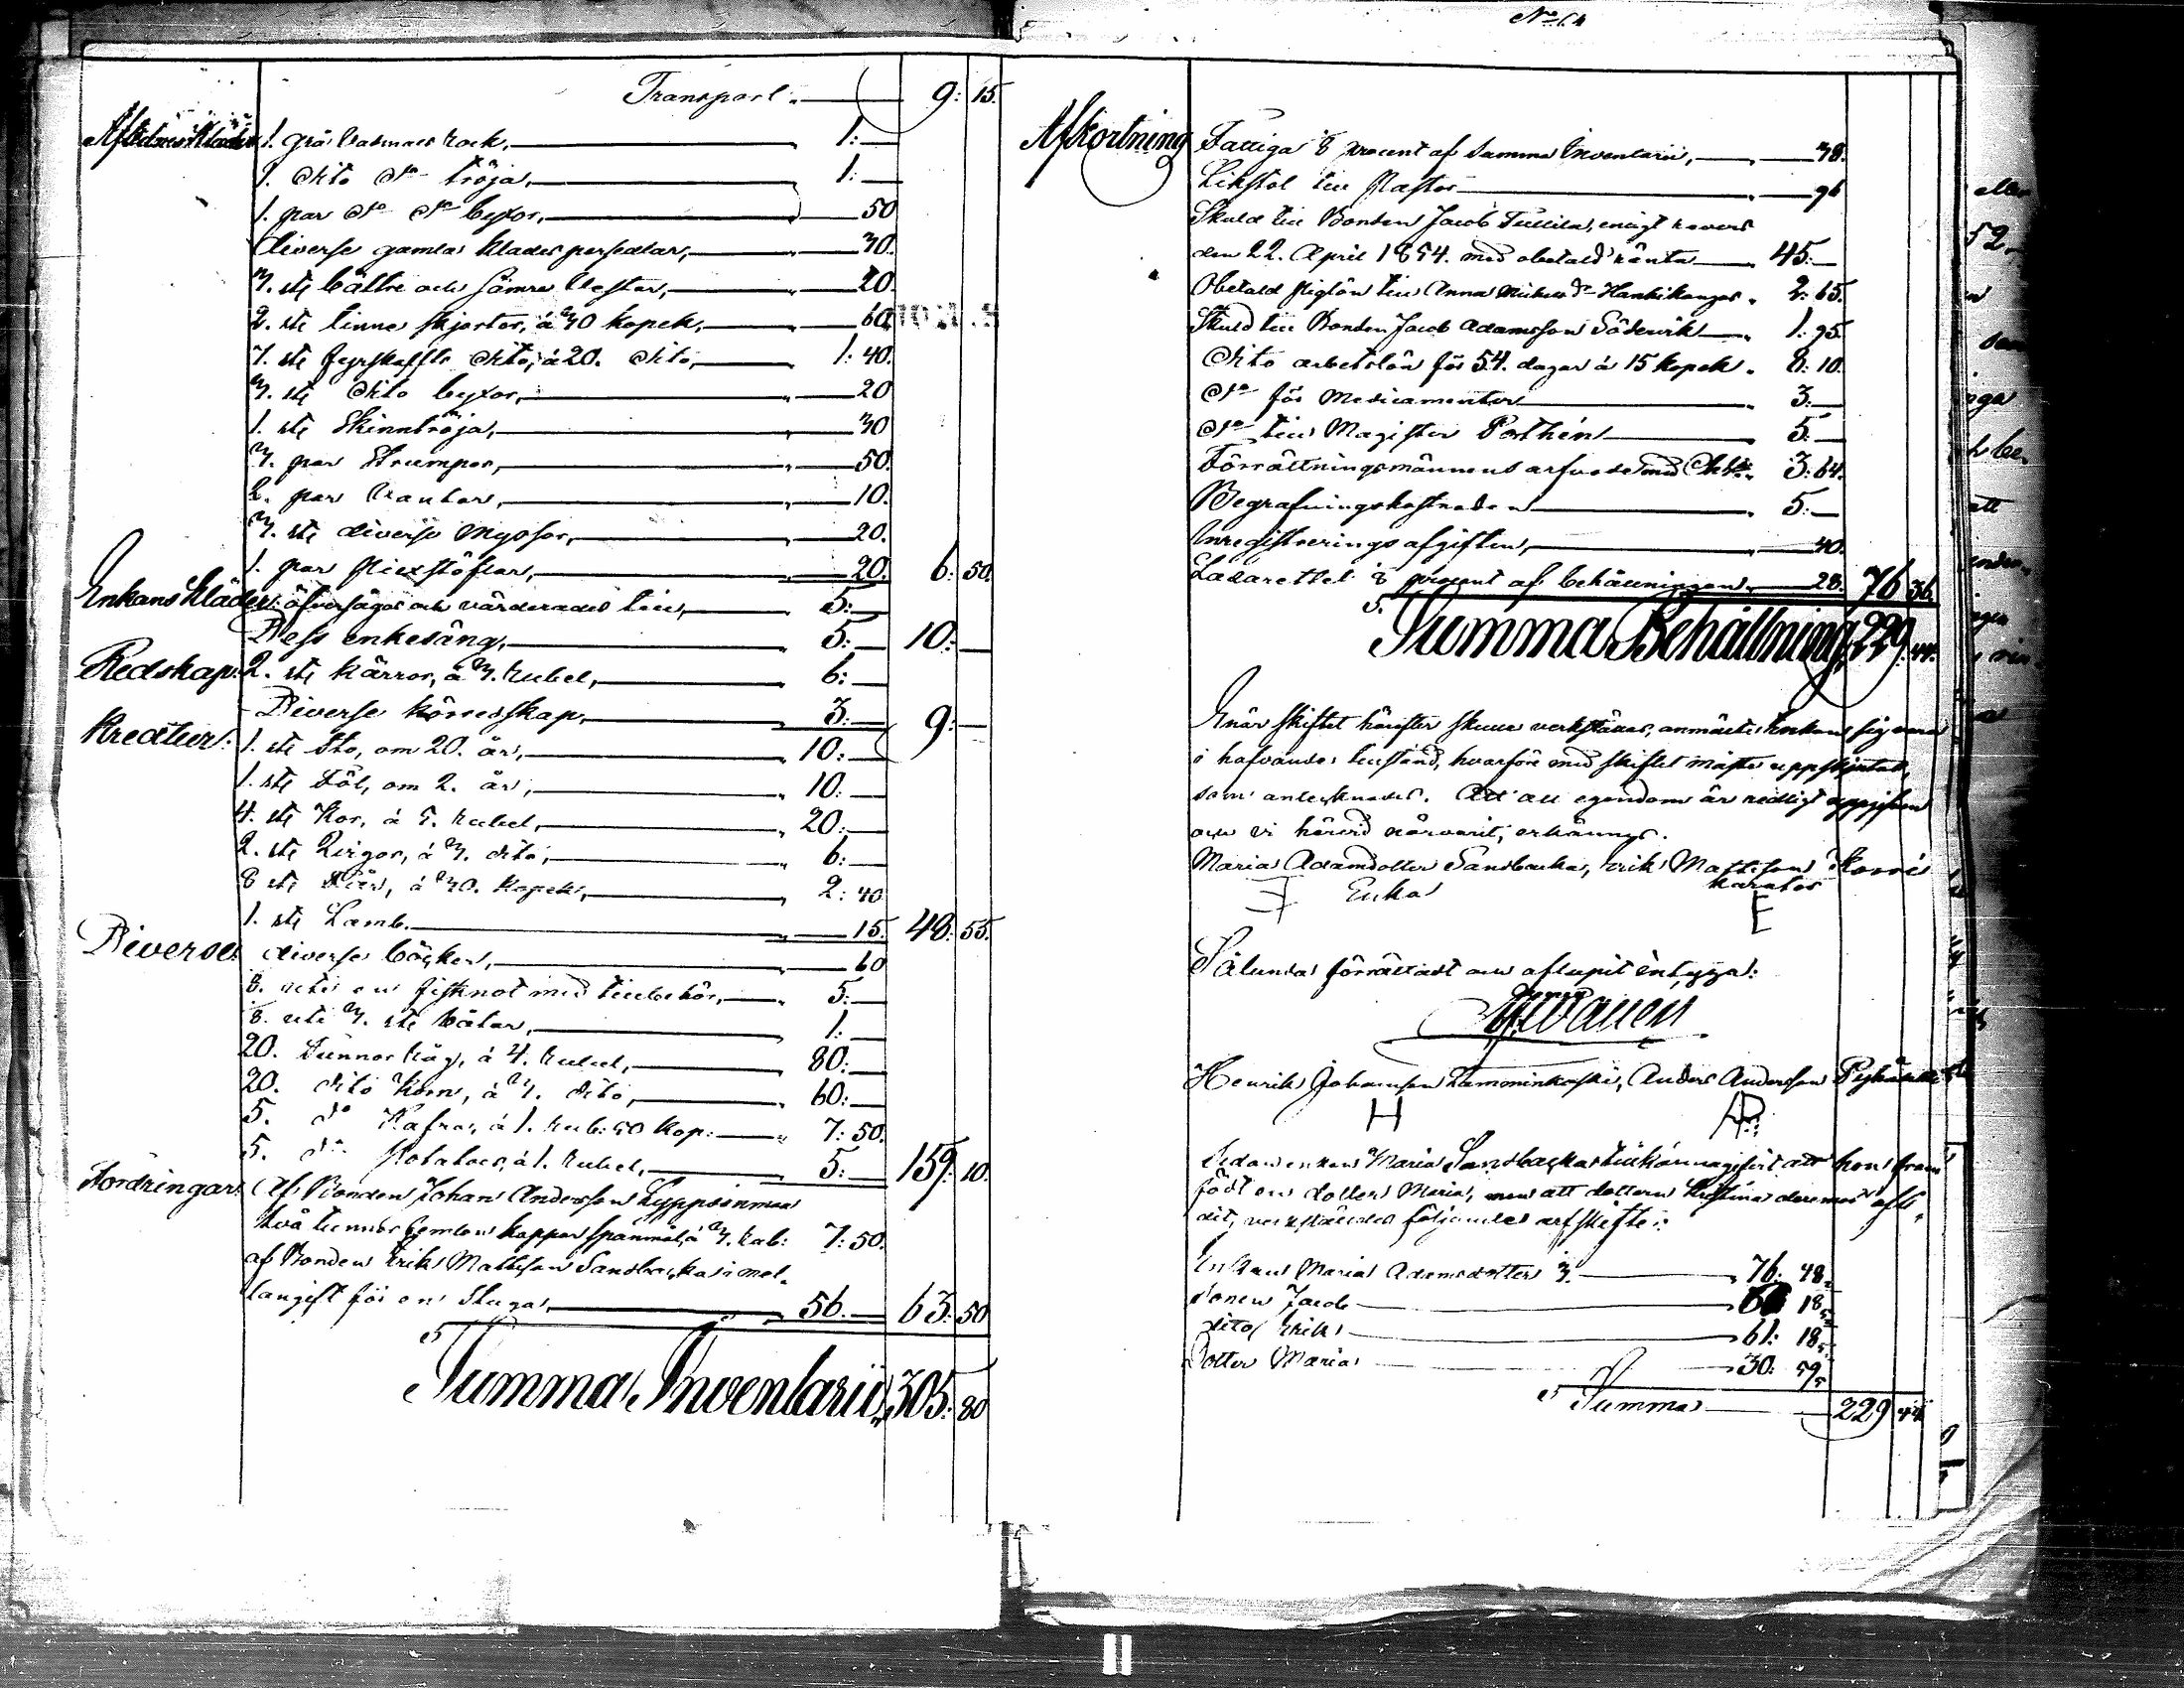 Transport 9: 15.
Afledne's Kläder
1. grå Vadmals rock, 1:
1. dito d:o tröja, 1:
1. par d:o d:o byxor, 50
diverse gamla klädespersedlar, 30.
3. st. bättre och sämre Vestar, 20.
2. st. linne skjortor, á 30 kopek, 60.
7. st. fyrskaffts dito, á 20. dito, 1: 40.
3. st. dito byxor, 20
1. st. Skinntröja, 30
3. par Strumpor, 50.
2. par Vantar, 10.
3. st. diverse Myssor, 20.
1. par pjexstöflar, 20. 6: 50.
Enkans Kläder: öfversågos och värderades till, 5:
Dess enkesäng, 5: 10:
Redskap: 2. st. kärror, á 3. rubel, 6:
Diverse köreskap, 3: 9:
Kreatur: 1. st. Sto, om 20. år, 10:
1. st. Föl, om 2. år, 10:
4. st. Kor, á 5. rubel, 20:
2. st. Qvigor, á 3. dito, 6:
8 st. Får, á 30. kopek, 2: 40
1. st. Lamb. 15. 48: 55.
Diverse diverse böcker, 60
8. uti en fisknot med tillbehör, 5:
8. uti 3. st. båtar, 1:
20. Tunnor Råg, á 4. rubel, 80:
20. dito Korn, á 3. dito, 60:
5. d:o Hafra, á 1. rub: 50 kop: 7: 50.
5. d:o Potatoes, á 1. rubel, 5: 159: 10.
Fordringar: Af Bonden Johan Andersson Lyppoinmaa
två tunnor femton kappar spanmål, á 3. rub: 7: 50.
af Bonden Erik Mattsson Sandbacka i mel-
langift för en Stuga, 56. 63: 50
Summa Inventarii, 305: 80
N:o 64
Afkortning Fattiga 8 procent af Summa Inventarii, 38.
Likstol till Pastor 96
Skuld till Bonden Jacob Tullila, enligt revers
den 22. April 1854. med obetald ränta 45:
Obetald piglön till Anna Mickels d:r Hankikangas 2: 65.
Skuld till Bonden Jacob Adamsson Södervik 1: 95.
Dito arbetslön för 54. dagar á 15 kopek 8: 10.
D:o för Medicamenter 3:
D:o till Magister Porthén 5:
Förrättningsmännens arfvode med 3: 64.
Begrafningskostnaden 5:
Inregistreringsafgiften, 40.
Lazarettet 8 procent af behållningen 28. 76 36.
Summa Behållning 229. 44.
Enär skiftet härefter skulle verkställas, anmälte Enkan sig vara
i hafvande tillstånd, hvarföre med skiftet måste uppskjutas,
som antecknades. Att all egendom är redligt uppgifven
och vi härvid närvarit, erkännes.
Maria Adamsdotter Sandbacka, Erik Mattsson Korri
Enka
Sålunda förrättadt och aflupit intyga:
Henrik Johansson Lamminkoski, Anders Andersson
H
AP:
Sedan enkan Maria Sandbacka tillkännagifvit att hon fram
födt en dotter Maria, men att dottern Kristina deremot afli-
dit, verkställdes följande arfskifte:
Enkan Maria Adamsdotter 76: 48.
Sonen Jacob 61 18.
dito Erik 61: 18.
Dotter Maria 30: 59.
Summa 229 44